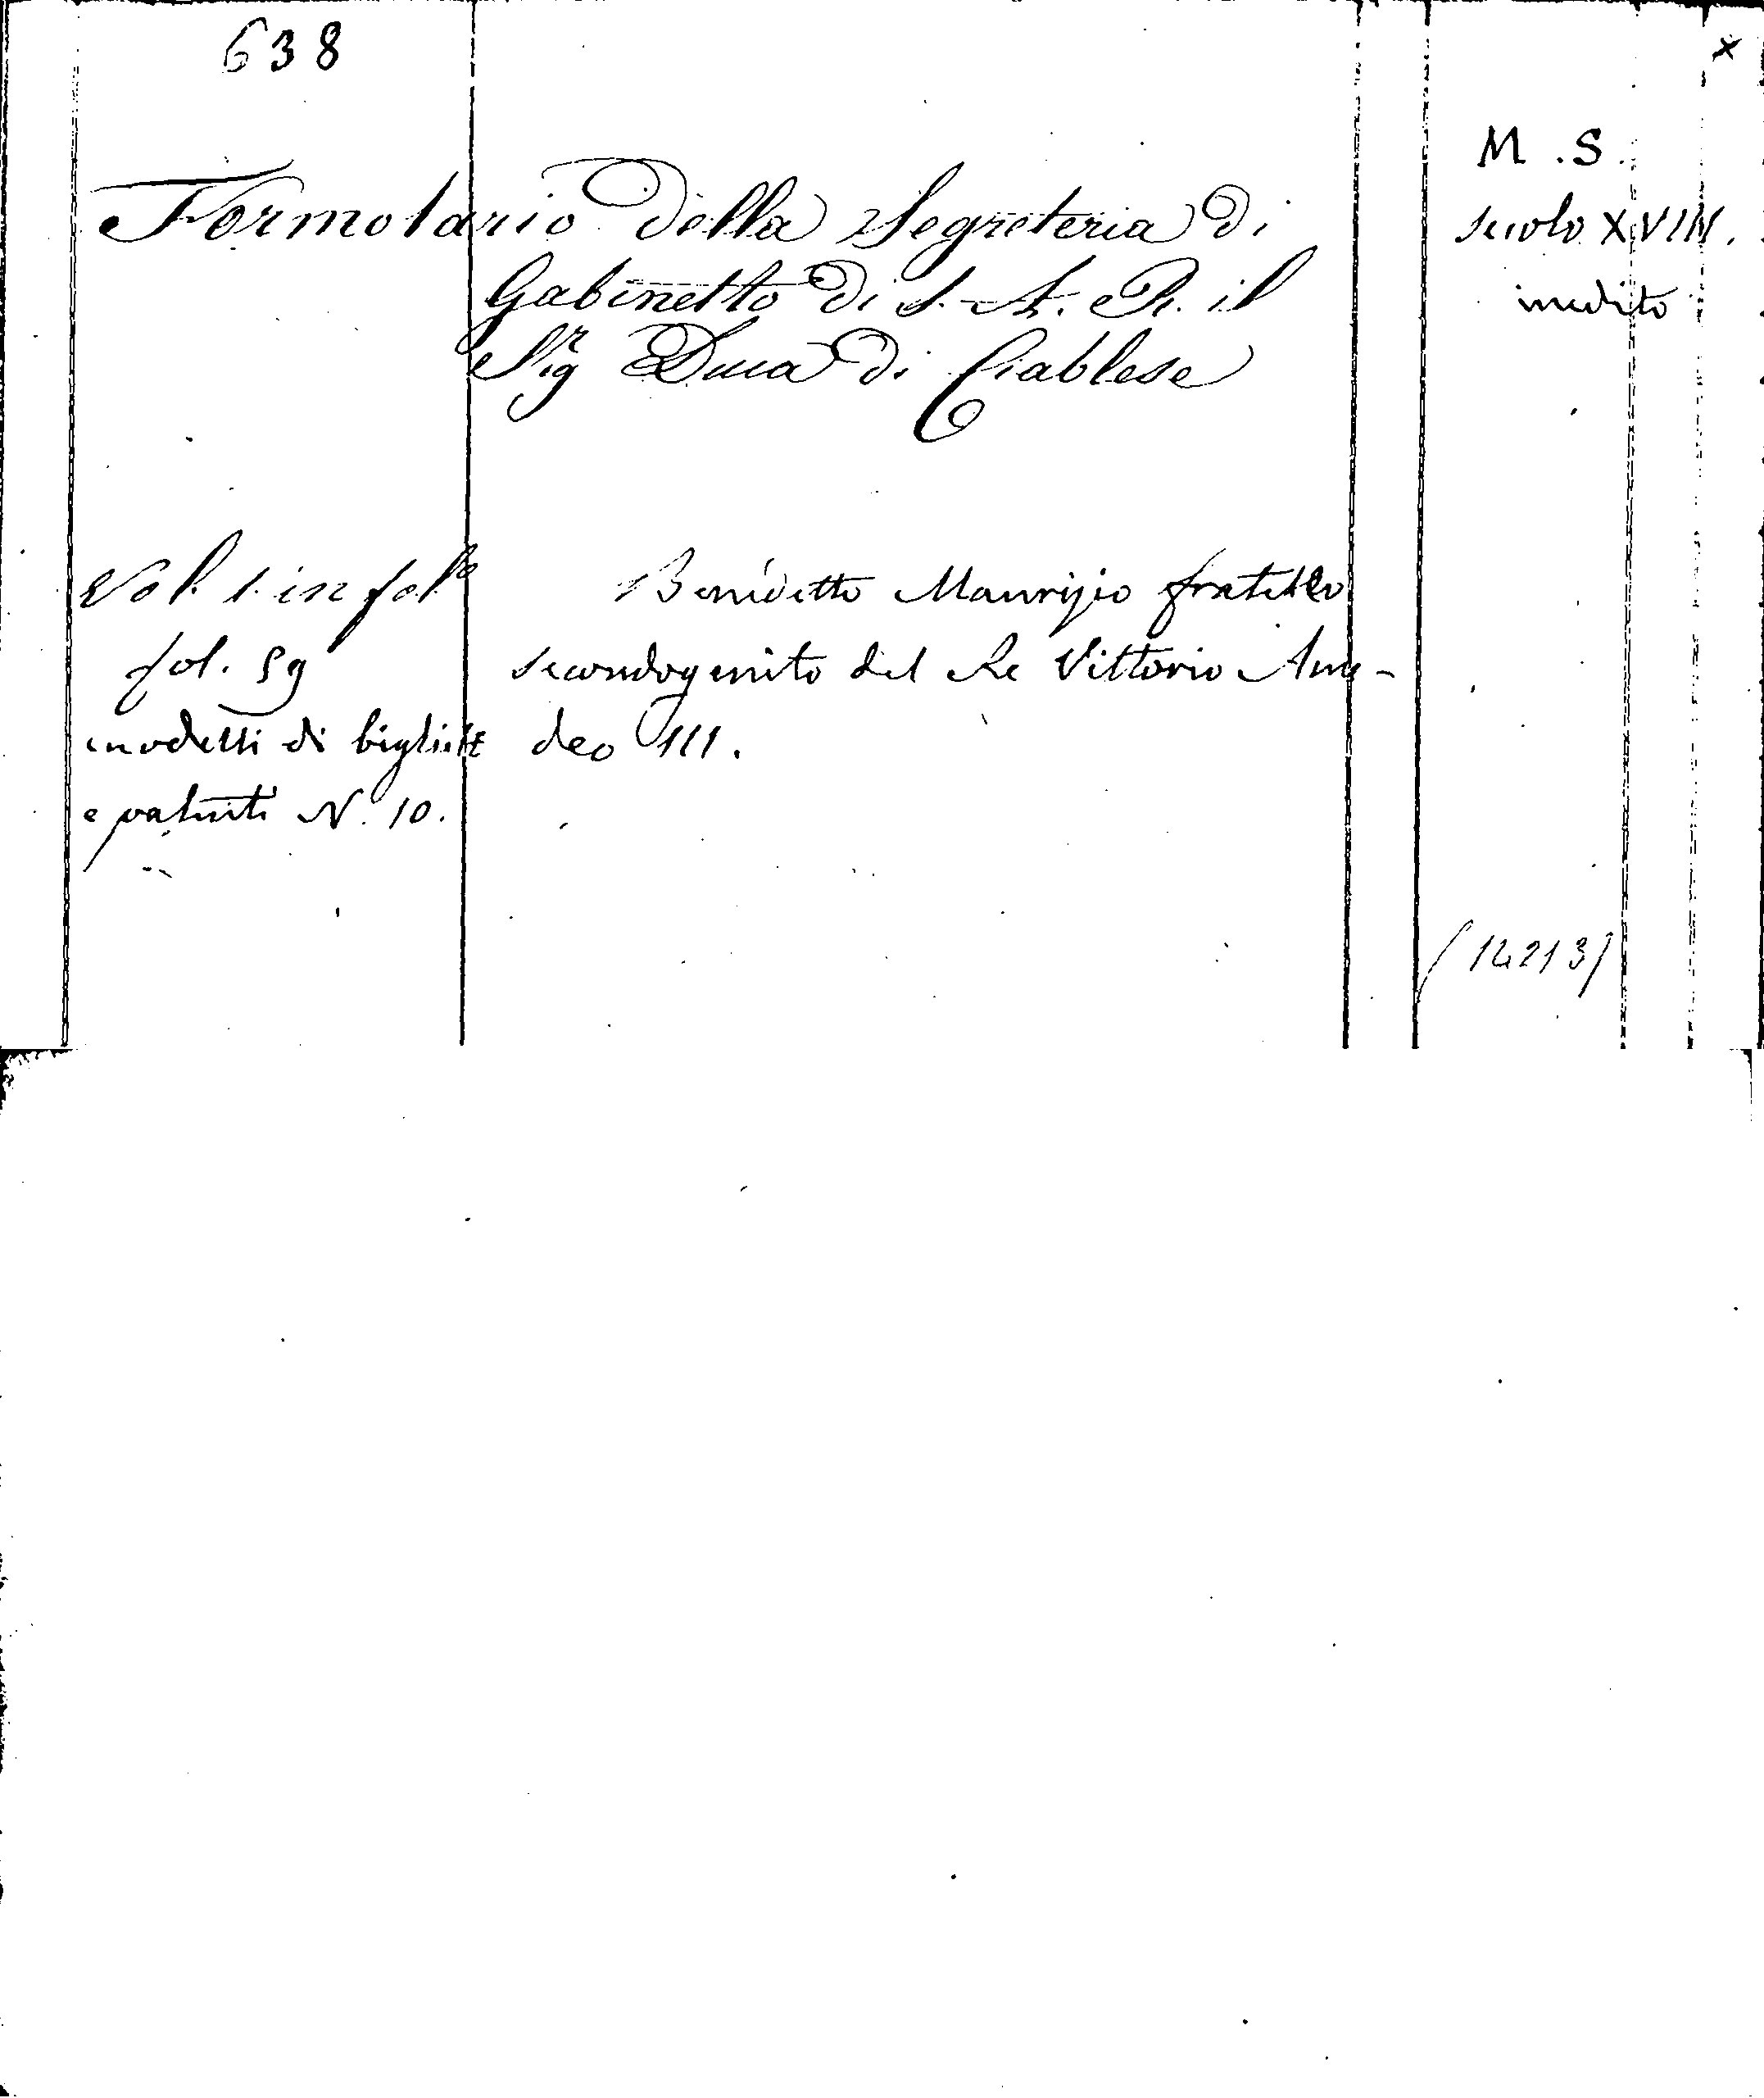 638
x
M. S.
Formolario della Segreteria di
secolo XVIII.
Gabinetto di S. A. R. il
inedito
Sigr Duca di Ciablese
Vol. 1. in folo
Benedetto Maurizio fratello
fol. 59
secondogenito del Re Vittorio Ame-
modelli di biglietti
deo III.
e patenti N. 10.
(14213)